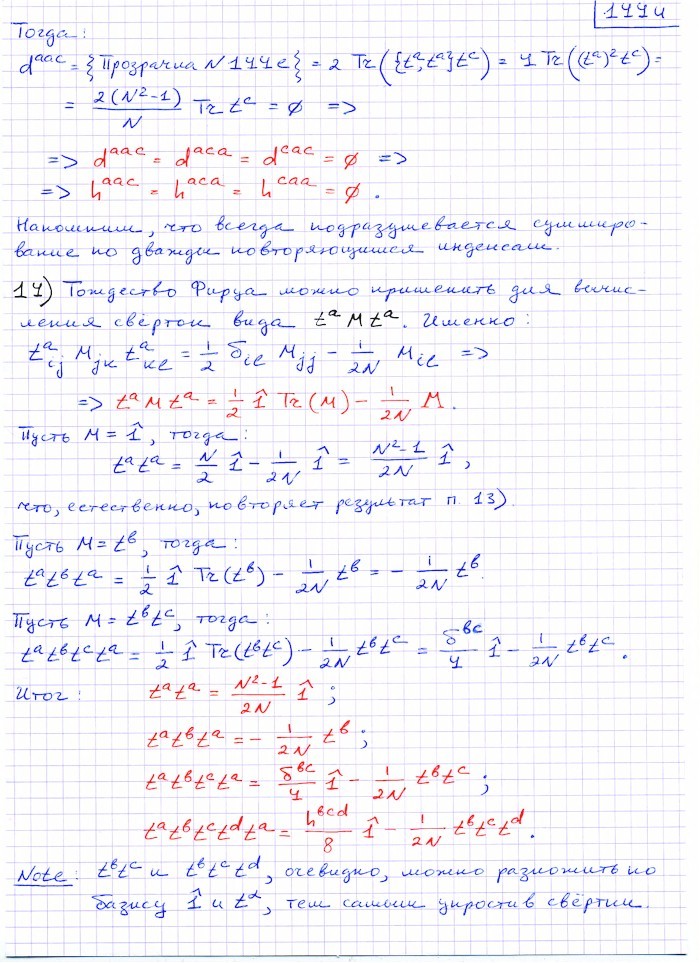 144и
Тогда:
d^{aac} = {Прозрачка N 144е} = 2 Tr({t^a, t^a}t^c) = 4 Tr((t^a)^2 t^c) =
= \frac{2(N^2-1)}{N} Tr t^c = ∅ =>
=> d^{aac} = d^{aca} = d^{cac} = ∅ =>
=> h^{aac} = h^{aca} = h^{caa} = ∅.
Напомним, что всегда подразумевается суммиро-
вание по дважды повторяющимся индексам.
14) Тождество Фирца можно применить для вычис-
ления свёрток вида t^a M t^a. Именно:
t^a_{ij} M_{jk} t^a_{kl} = \frac{1}{2} δ_{il} M_{jj} - \frac{1}{2N} M_{il} =>
=> t^a M t^a = \frac{1}{2} \hat{1} Tr(M) - \frac{1}{2N} M.
Пусть M = \hat{1}, тогда:
t^a t^a = \frac{N}{2} \hat{1} - \frac{1}{2N} \hat{1} = \frac{N^2-1}{2N} \hat{1},
что, естественно, повторяет результат п. 13).
Пусть M = t^b, тогда:
t^a t^b t^a = \frac{1}{2} \hat{1} Tr(t^b) - \frac{1}{2N} t^b = - \frac{1}{2N} t^b.
Пусть M = t^b t^c, тогда:
t^a t^b t^c t^a = \frac{1}{2} \hat{1} Tr(t^b t^c) - \frac{1}{2N} t^b t^c = \frac{δ^{bc}}{4} \hat{1} - \frac{1}{2N} t^b t^c.
Итог: t^a t^a = \frac{N^2-1}{2N} \hat{1};
t^a t^b t^a = - \frac{1}{2N} t^b;
t^a t^b t^c t^a = \frac{δ^{bc}}{4} \hat{1} - \frac{1}{2N} t^b t^c;
t^a t^b t^c t^d t^a = \frac{h^{bcd}}{8} \hat{1} - \frac{1}{2N} t^b t^c t^d.
Note: t^b t^c и t^b t^c t^d, очевидно, можно разложить по
базису \hat{1} и t^α, тем самым упростив свёртки.